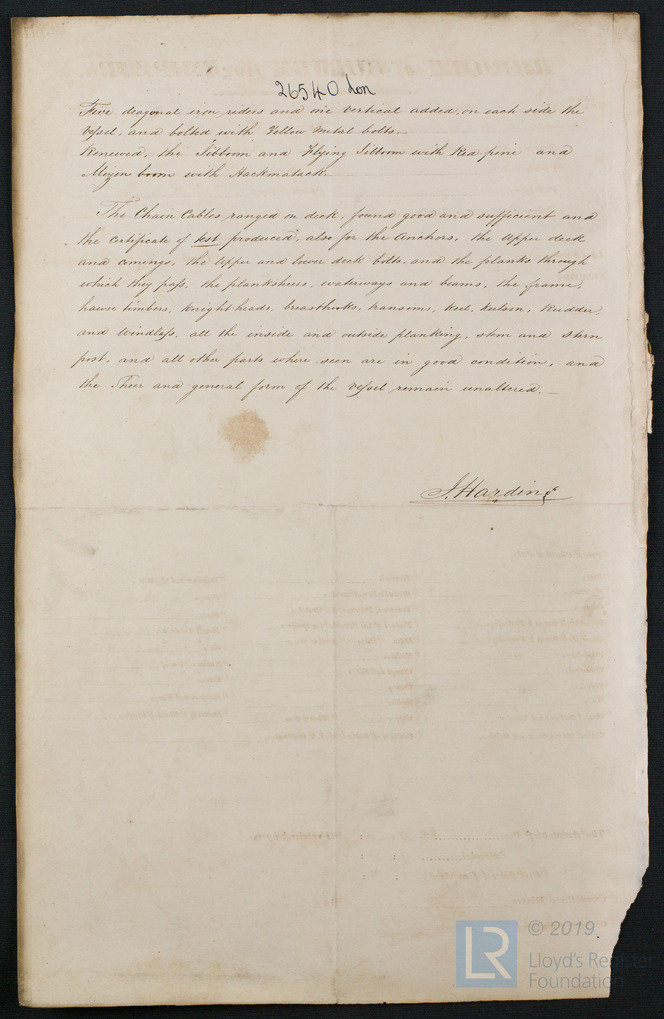 26540 Lon
Five diagonal iron riders and one vertical added, on each side the
Vessel, and bolted with Yellow Metal bolts.—
Renewed, the Jibboom and Flying Jibboom with Red pine and
Mizen boom with Hackmatack.—
The Chain Cables, ranged on deck, found good and sufficient and
the certificate of test produced, also for the Anchors, the Upper deck
and comings, the Upper and lower deck bolts, and the planks through
which they pass, the plansheers, waterways and beams, the frame,
hawse timbers, Knight-heads, breasthooks, transoms, Keel, Keelson, Rudder,
and Windlass, all the inside and outside planking, stem and stern
post, and all other parts where seen are in good condition, and
the Sheer and general form of the Vessel remain unaltered.—
J. Harding
© 2019
LR
Lloyd's Register
Foundation